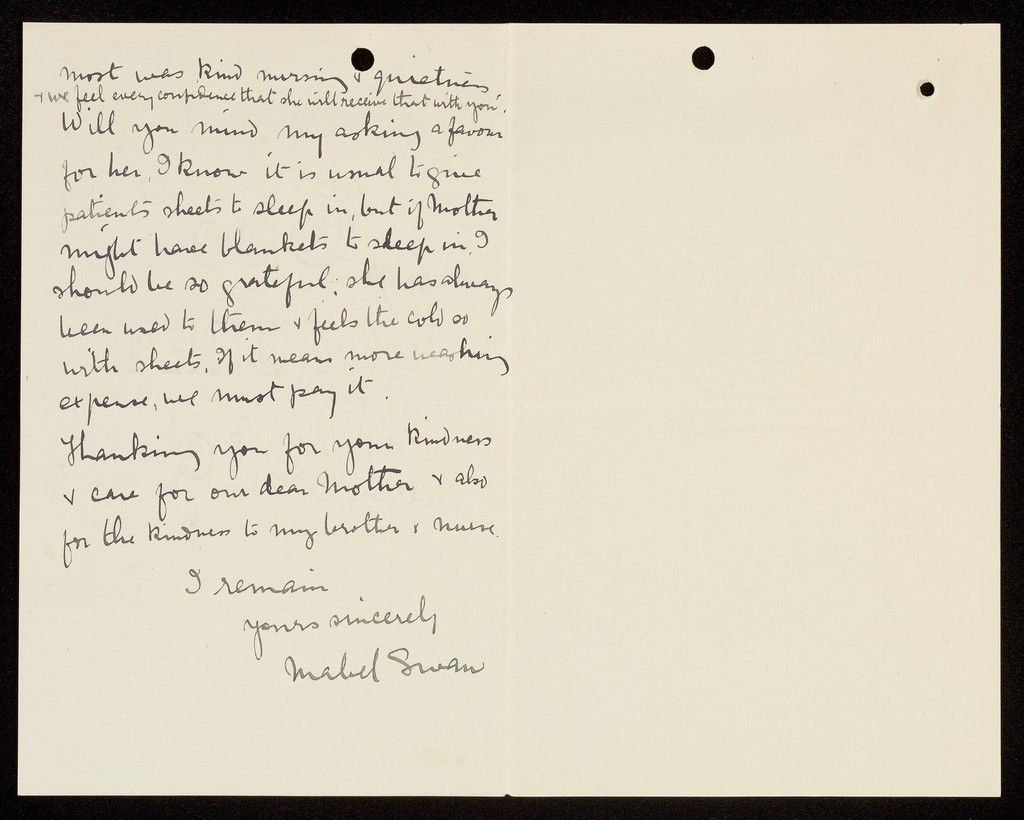 most was kind nursing & quietness
& we feel every confidence that she will receive that with you.
Will you mind my asking a favour
for her, I know it is usual to give
patients sheets to sleep in, but if Mother
might have blankets to sleep in, I
should be so grateful; she has always
been used to them & feels the cold so
with sheets. If it means more washing
expense, we must pay it.
Thanking you for your kindness
& care for our dear Mother & also
for the kindness to my brother & nurse.
I remain
yours sincerely
Mabel Swan